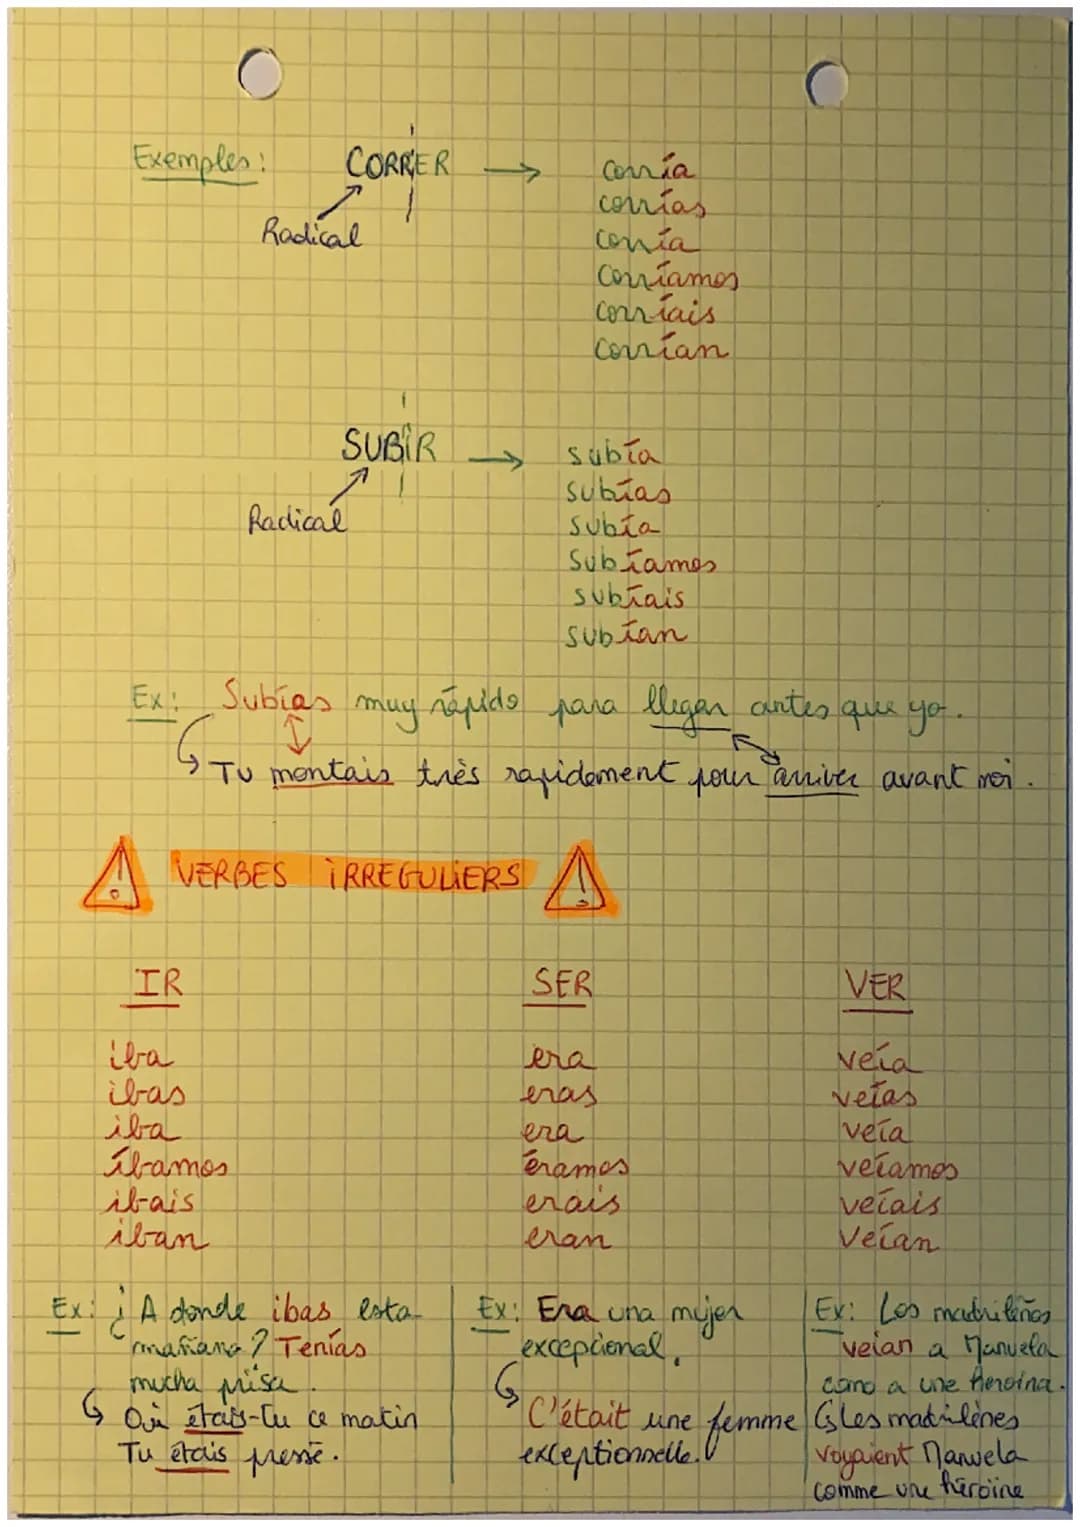 Exemples: CORRER → corría
Radical corrías
corría
corríamos
corríais
corrían
SUBIR → subía
subías
Radical subía
subíamos
subíais
subían
Ex: Subías muy rápido para llegar antes que yo.
Tu montais très rapidement pour arriver avant moi.
VERBES IRREGULIERS
IR SER VER
iba era veía
ibas eras veías
iba era veía
íbamos éramos veíamos
ibais erais veíais
iban eran veían
Ex: ¿A donde ibas esta
mañana? Tenías
mucha prisa.
Où étais-tu ce matin
Tu étais pressé.
Ex: Era una mujer
excepcional.
C'était une femme
exceptionnelle.
Ex: Los madrileños
veían a Manuela
como a une heroína.
Les madrilènes
voyaient Manuela
comme une héroïne